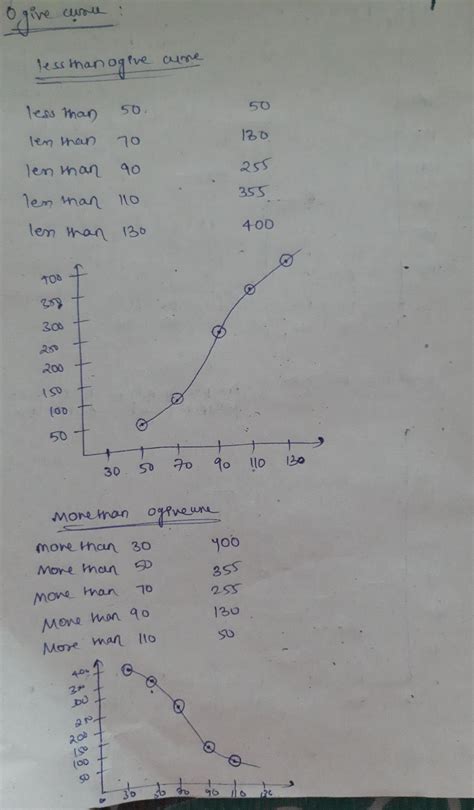 Ogive curve :
less than ogive curve
less than 50 50
less than 70 130
less than 90 255
less than 110 355
less than 130 400
400
350
300
250
200
150
100
50
30 50 70 90 110 130
More than ogive curve
more than 30 400
More than 50 355
more than 70 255
More than 90 130
More than 110 50
400
350
300
250
200
150
100
50
0 30 50 70 90 110 130